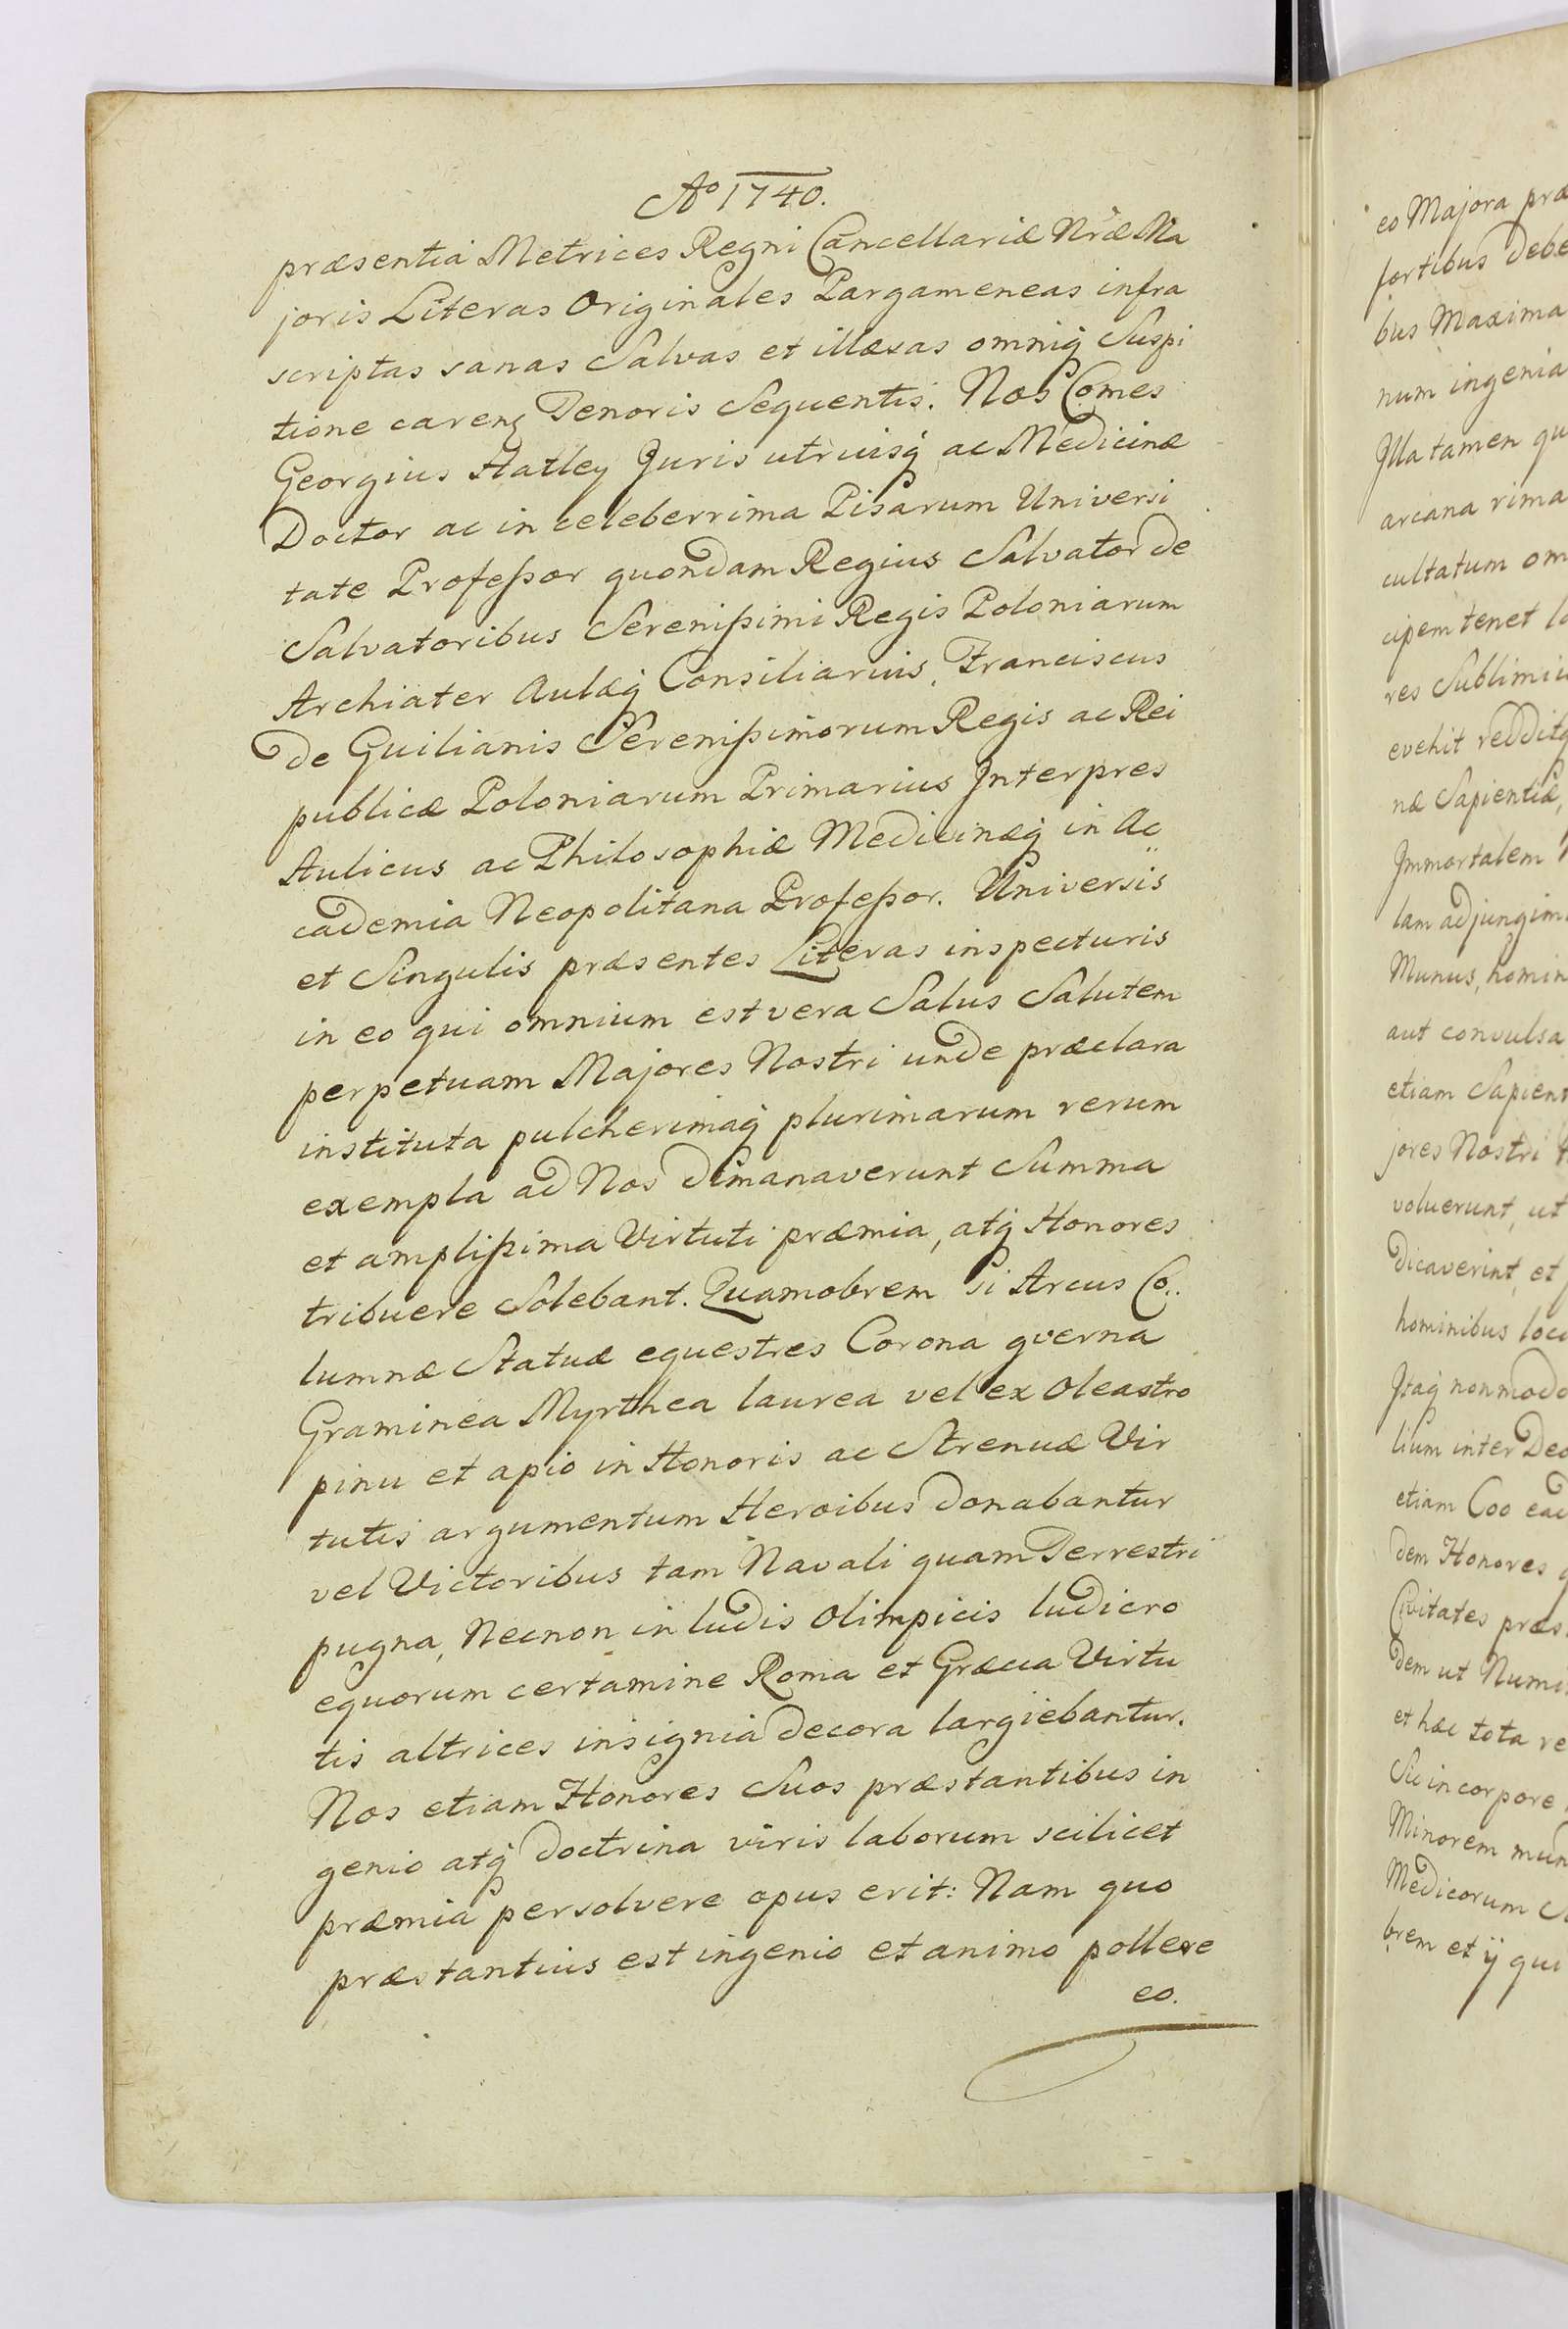 Aº 1740.
præsentia Metrices Regni Cancellariæ Nræ Ma
joris Literas Originales Pargameneas infra
scriptas sanas Salvas et illæsas omniq́ Suspi
tione careñ Tenoris Sequentis. Nos Comes
Georgius Hatley Juris utriusq́ ac Medicinæ
Doctor ac in celeberrima Pisarum Universi
tate Profeßor quondam Regius Salvator de
Salvatoribus Serenißimi Regis Poloniarum
Archiater Aulæq́ Consiliarius, Franciscus
de Guilianis Serenißimorum Regis ac Rei
publicæ Poloniarum Primarius Interpres
Aulicus ac Philosophiæ Medicinæq́ in Ac„
cademia Neopolitana Profeßor. Universis
et Singulis præsentes Literas inspecturis
in eo qui omnium est vera Salus Salutem
perpetuam Majores Nostri unde præclara
instituta pulcherimaq́ plurimarum rerum
exempla ad Nos dimanaverunt Summa
et amplißima Virtuti præmia, atq́ Honores
tribuere Solebant. Quamobrem si Arcus Co„
lumnæ Statuæ equestres Corona qverna
Graminea Myrthea laurea vel ex Oleastro
pinu et apio in Honoris ac Strenuæ Vir
tutis argumentum Heroibus donabantur
vel Victoribus tam Navali quam Terrestri
pugna, Necnon in ludis Olimpicis ludicro
equorum certamine Roma et Græcia Virtu
tis altrices insignia decora largiebantur.
Nos etiam Honores Suos præstantibus in
genio atq́ doctrina viris laborum scilicet
præmia persolvere opus erit: Nam quo
præstantius est ingenio et animo pollere
eo.
eo Majora præ
fortibus debe
bus Maxima
num ingenia
Illa tamen qu
arcana rima
cultatum om
cipem tenet lo
res Sublimiu
evehit redditq
næ Sapientiæ,
Immortalem
lam adjungim
Munus, homin
aut convulsa
etiam Sapient
jores Nostri
voluerunt, ut
dicaverint, et
hominibus loco
Itaq́ non modo
lium inter Deo
etiam Coo ead
dem Honores q
Civitates præs
dem ut Numi
et hæc tota re
Sic in corpore
Minorem mun
Medicorum S
brem et ÿ qui